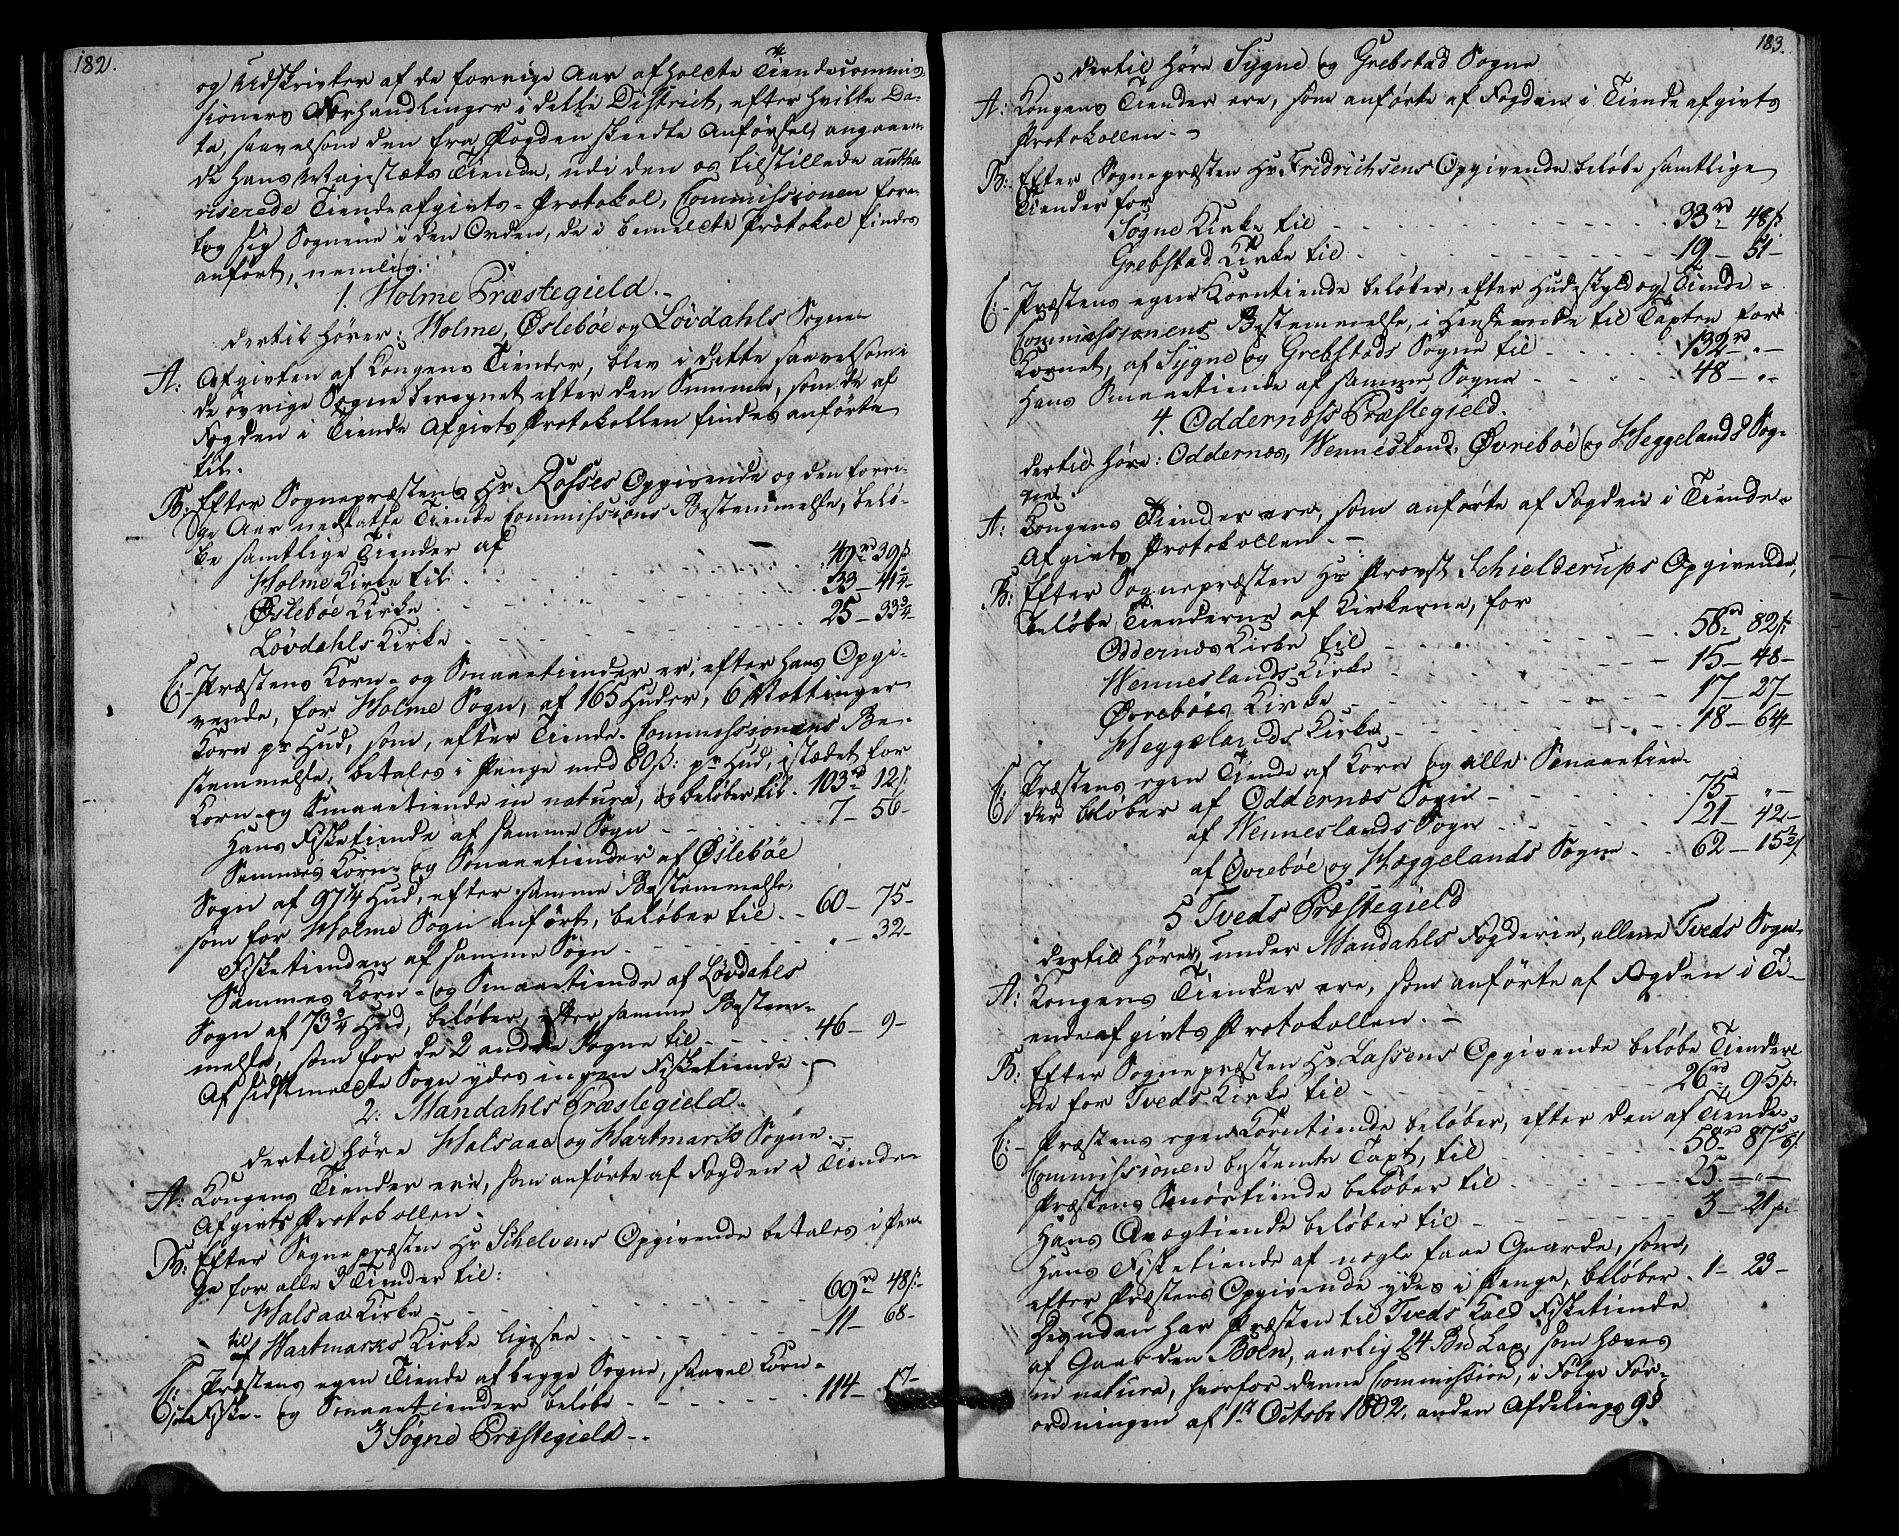 182.
og Udskrivter af de forrige Aar afholdte Tiendecommis-
sioners Forhandlinger i dette District, efter hvilke Da-
ta, saavelsom den fra Fogden skeedte Anførsel, angaaen-
de Hans Majestæts Tiende, udi den os tilstillede autho-
riserede Tiendeafgivts-Protokol, Commissionen fore-
tog sig Sognene i den Orden, de i bemeldte Protokol findes
anført, nemlig:
1. Holme Præstegield.
dertil hører: Holme, Øslebøe og Løvdahls Sogne
A: Afgivten af Kongens Tiender, blev i dette saavelsom i
de øvrige Sogne beregnet efter den Summa, som de af
Fogden i Tiende Afgivts Protokollen findes anførte
til.
B: Efter Sognepræsten Hr Rosses Opgivende og den forri-
ge Aar nedsatte Tiende Commissions Bestemmelse, belø-
be samtlige Tiender af
Holme Kirke til - - - 49rd 39ß
Øslebøe Kirke - - - 33 - 41¼ -
Løvdahls Kirke - - - 25 - 33¾ -
C: Præstens Korn- og Smaaetiender er, efter hans Opgi-
vende, for Holme Sogn, af 165 Huder, 6 Sættinger
Korn pr Hud, som, efter Tiende-Commissionens Be-
stemmelse, betales i Penge med 60ß: pr Hud, istædet for
Korn- og Smaaetiende in natura, og beløber til - 103rd 12ß
Hans Fisketiende af samme Sogn - - - 7 - 56 -
Sammes Korn- og Smaaetiender af Øslebøe
Sogn af 97¼ Hud, efter samme Bestemmelse,
som for Holme Sogn anført, beløber til - - 60 - 75 -
Fisketienden af samme Sogn - - - " - 32 -
Sammes Korn- og Smaaetiende af Løvdahls
Sogn af 73¾ Hud, beløber, efter samme Bestem-
melse, som for de 2 andre Sogne til - - - 46 - 9 -
Af sidstmeldte Sogn ydes ingen Fisketiende -
2. Mandahls Præstegield.
dertil høre Halsaae og Hartmarks Sogne. -
A: Kongens Tiender ere, som anførte af Fogden i Tiende-
Afgivts Protokollen.
B: Efter Sognepræsten Hr Schelvens Opgivende betales i Pen-
ge for alle 3 Tiender til:
Halsaae Kirke - - - 69rd 48ß
til af Hartmarks Kirke ligesaa - - - 11 - 68 -
C: Præstens egen Tiende af begge Sogne, saavel Korn-
som Fiske- og Smaaetiender beløbe - - - 114 - 17 -
3 Søgne Præstegield - -
183.
dertil høre Sygne og Grebstad Sogne
A: Kongens Tiender ere, som anførte af Fogden i Tiendeafgivts
Protokollen. -
B: Efter Sognepræsten Hr Fridrichsens Opgivende beløbe samtlige
Tiender for
Søgne Kirke til - - - 33rd 48ß
Grebstad Kirke til - - - 19 - 51 -
C: Præstens egen Korntiende beløber, efter Hudeskyld og Tiende-
Commissionens Bestemmelse, i Henseende til Taxten for
Kornet, af Sygne og Grebstads Sogne til - - - 132rd " -
Hans Smaaetiende af samme Sogne - - - 48 - " -
4. Oddernæss Præstegield.
dertil høre: Oddernæs, Wennesland, Øvrebøe og Heggelands Sog-
ne.
A: Kongens Tiender ere, som anførte af Fogden i Tiende-
Afgivts Protokollen. -
B: Efter Sognepræsten Hr Provst Schielderups Opgivende,
beløbe Tienderne af Kirkerne, for
Oddernæs Kirke til - - - 58rd 82ß
Wenneslands Kirke - - - 15 - 48 -
Øvrebøes Kirke - - - 17 - 27 -
Heggelands Kirke - - - 18 - 64 -
C: Præstens egen Tiende af Korn og alle Smaaetien-
der beløber af Oddernæs Sogn - - - 75 - " -
af Wenneslands Sogn - - - 21 - 42 -
af Øvrebøe og Hæggelands Sogne - - 62 - 15½ß
5 Tveds Præstegield
dertil hører, under Mandahls Fogderie, allene Tveds Sogn.
A: Kongens Tiender ere, som anførte af Fogden i Ti-
endeafgivts Protokollen. -
B: Efter Sognepræsten Hr Lassens Opgivende beløbe Tiender-
ne for Tveds Kirke til - - - 26rd 95ß
C: - Præstens egen Korntiende beløber, efter den af Tiende-
Commissionen bestemte Taxt, til - - - 58rd 87 ß
Præstens Smørtiende beløber til - - - 25 - " -
Hans Qvægtiende beløber til - - - 3 - 21ß
Hans Fisketiende af nogle faae Gaarde, som,
efter Præstens Opgivende ydes i Penge, beløber - 1 - 23 -
Desuden har Præsten til Tveds Kald Fisketiende
af Gaarden Boen, aarlig 24 Bd Lax, som hæves
in natura, hvorfor denne Commission, i Følge For-
ordningen af 1st October 1802, anden Afdelings 9§